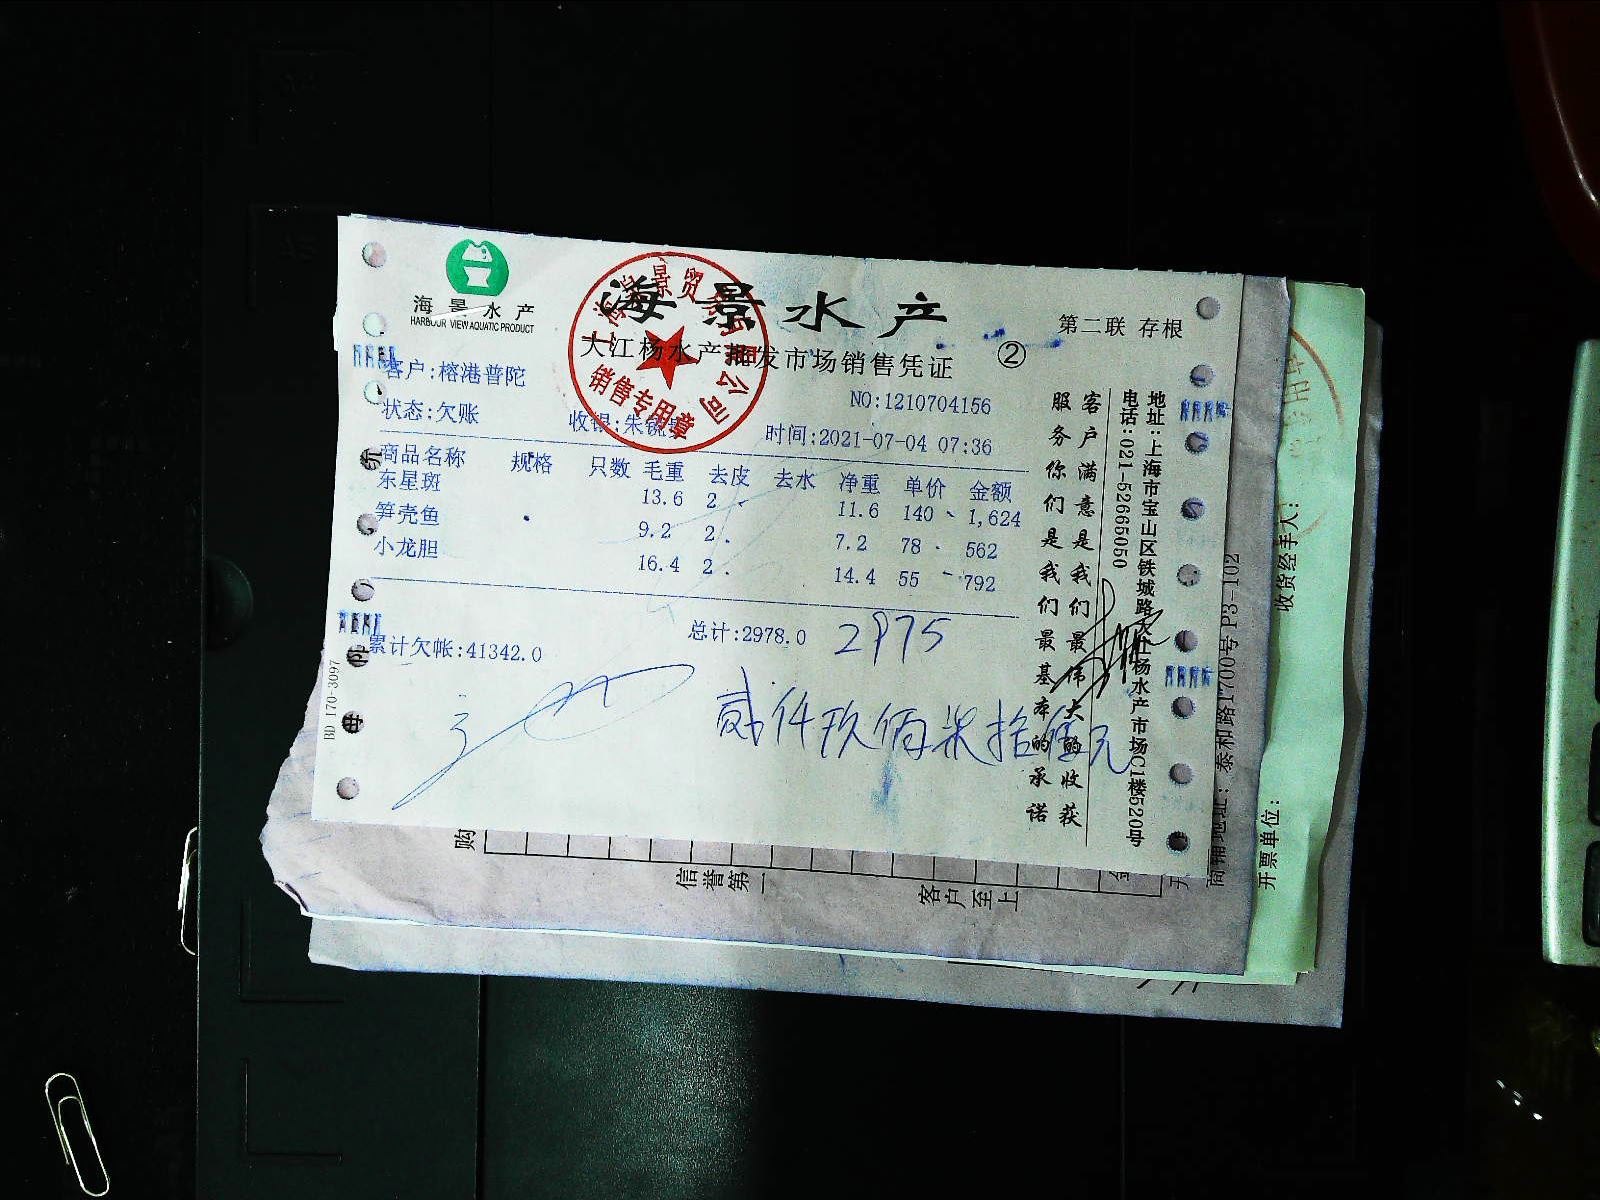 海景水产
HARBOUR VIEW AQUATIC PRODUCT
海景水产
第二联 存根
大江杨水产批发市场销售凭证 ②
销售专用章
客户:榕港普陀
NO:1210704156
状态:欠账
收银:朱
时间:2021-07-04 07:36
商品名称 规格 只数 毛重 去皮 去水 净重 单价 金额
东星斑 13.6 2 11.6 140 1,624
笋壳鱼 9.2 2 7.2 78 562
小龙胆 16.4 2 14.4 55 792
总计:2978.0 2975
累计欠帐:41342.0
贰仟玖佰柒拾伍元
BD 170-3097
客户满意是我们最伟大的收获
服务你们是我们最基本的承诺
地址:上海市宝山区铁城路大江杨水产市场C1楼520号
电话:021-52665050
商铺地址:泰和路1700号 P3-102
收货经手人:
开票单位:
购
信誉第一
客户至上